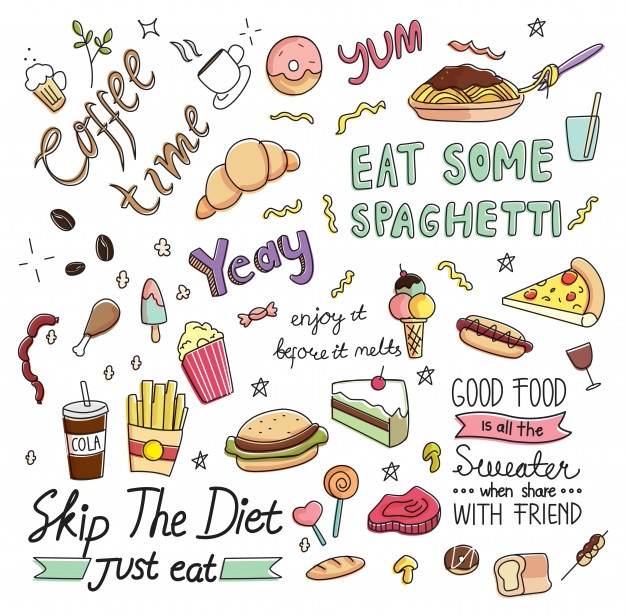 YUM
Coffee
time
EAT SOME
SPAGHETTI
Yeay
enjoy it
before it melts
COLA
GOOD FOOD
is all the
Sweater
when share
WITH FRIEND
Skip The Diet
Just eat